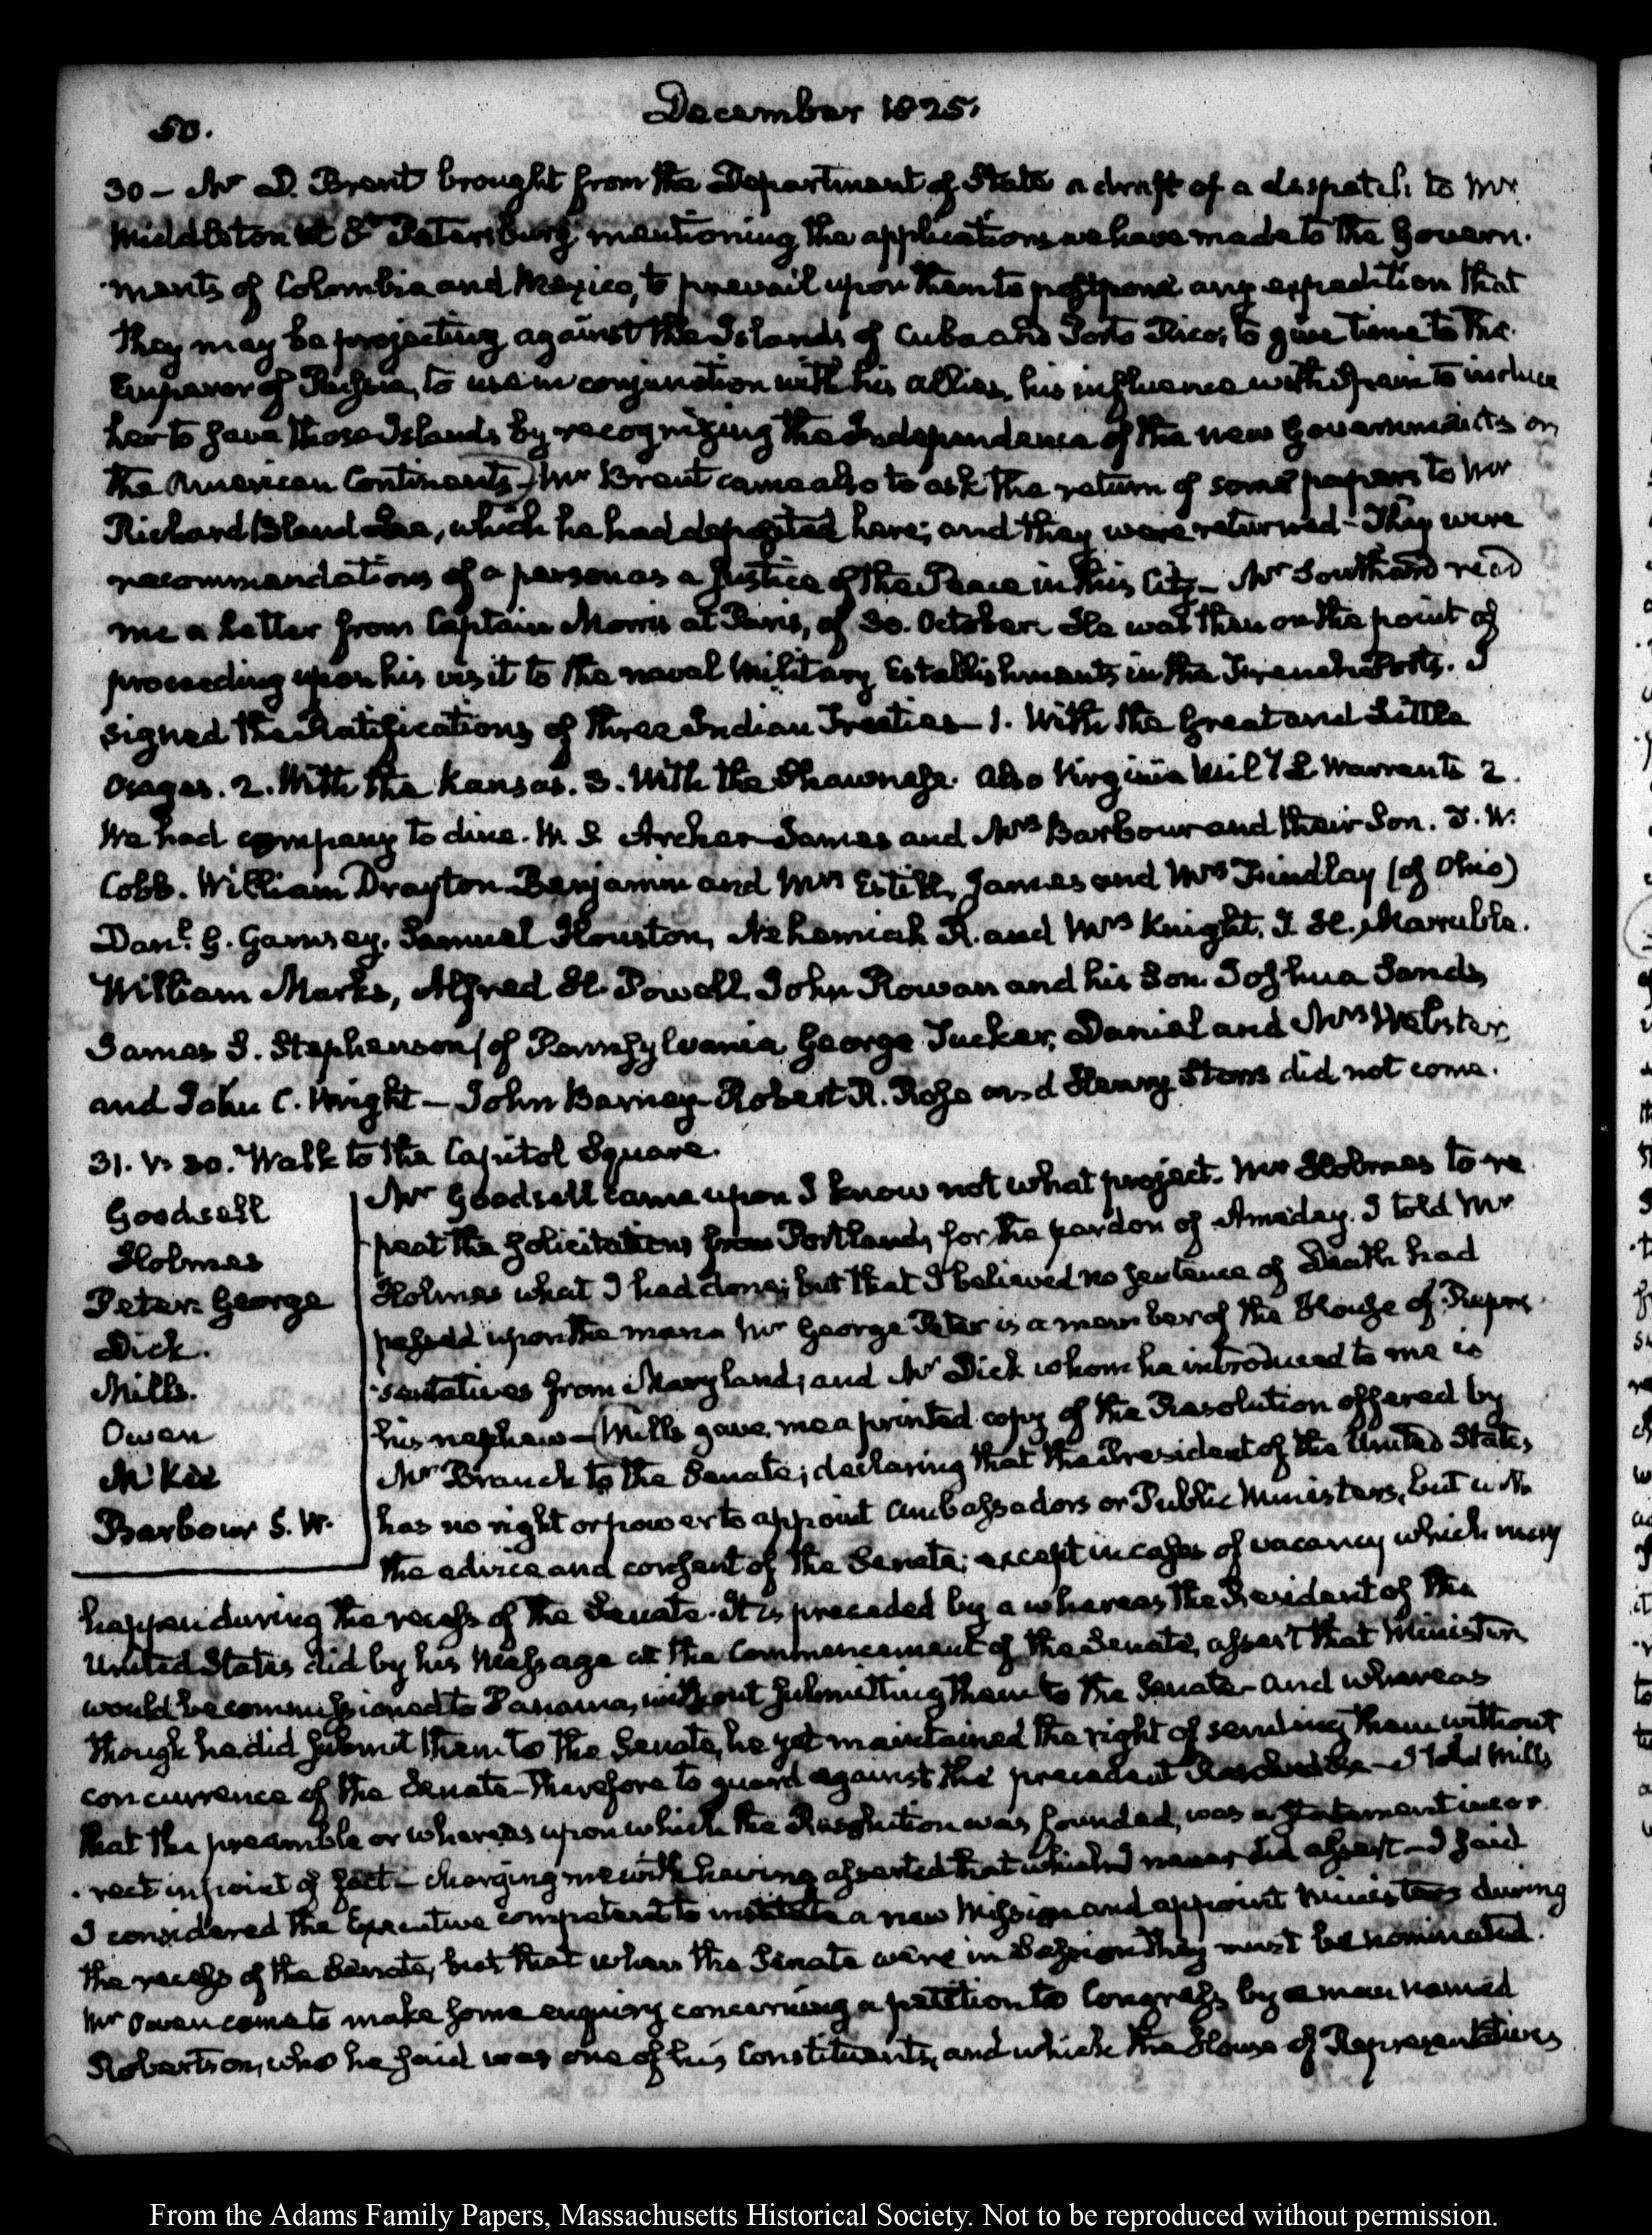 50.
December 1825.
30 — Mr D. Brent brought from the Department of State a draft of a despatch to Mr
Middleton at St Petersburg mentioning the applications we have made to the Govern-
ments of Colombia and Mexico, to prevail upon them to postpone any expedition that
they may be projecting against the Islands of Cuba and Porto Rico, to give time to the
Emperor of Russia, to use in conjunction with his allies, his influence with Spain to induce
her to save those Islands by recognizing the Independence of the new Governments on
the American Continents — Mr Brent came also to ask the return of some papers to Mr
Richard Bland Lee, which he had deposited here; and they were returned — They were
recommendations of a person as a Justice of the Peace in this City — Mr Southard read
me a Letter from Captain Morris at Paris, of 30. October. He was then on the point of
proceeding upon his visit to the naval Military Establishments in the French Ports. I
signed the Ratifications of three Indian Treaties — 1. With the Great and Little
Osages. 2. With the Kansas. 3. With the Shawnese. Also Virginia Mily L Warrants 2.
We had company to dine. W. S Archer James and Mrs Barbour and their Son. T. W.
Cobb. William Drayton Benjamin and Mrs Estill, James and Mrs Findlay (of Ohio)
Danl. G. Garnsey, Samuel Houston, Nehemiah R. and Mrs Knight. I. H. Marable.
William Marks, Alfred H. Powell, John Rowan and his Son. Joshua Sands
James S. Stephenson (of Pennsylvania George Tucker, Daniel and Mrs Webster,
and John C. Wright — John Barney Robert R. Rose and Henry Storrs did not come.
31. V: 30. Walk to the Capitol Square.
Goodsell
Holmes
Peter. George
Dick.
Mills.
Owen
McKee
Barbour S. W.
Mr Goodsell came upon I know not what project. Mr Holmes to re
peat the solicitations from Portland, for the pardon of Ameday. I told Mr
Holmes what I had done; but that I believed no sentence of Death had
passed upon the man. Mr George Peter is a member of the House of Repre
sentatives from Maryland; and Mr Dick whom he introduced to me is
his nephew — Mills gave me a printed copy of the Resolution offered by
Mr Branch to the Senate; declaring that the President of the United States
has no right or power to appoint Ambassadors or Public Ministers, but with
the advice and consent of the Senate; except in cases of vacancy which may
happen during the recess of the Senate. It is preceded by a whereas the President of the
United States did by his Message at the Commencement of the Senate, assert that Ministers
would be commissioned to Panama, without submitting them to the Senate — and whereas
though he did submit them to the Senate, he yet maintained the right of sending them without
concurrence of the Senate — Therefore to guard against the precedent Resolved &c — I told Mills
that the preamble or whereas upon which the Resolution was founded, was a statement incor
rect in point of fact — charging me with having asserted that which I never did assert — I said
I considered the Executive competent to institute a new Mission and appoint Ministers during
the recess of the Senate, but that when the Senate were in Session they must be nominated.
Mr Owen came to make some enquiry concerning a petition to Congress by a man named
Robertson, who he said was one of his Constituents, and which the House of Representatives
From the Adams Family Papers, Massachusetts Historical Society. Not to be reproduced without permission.